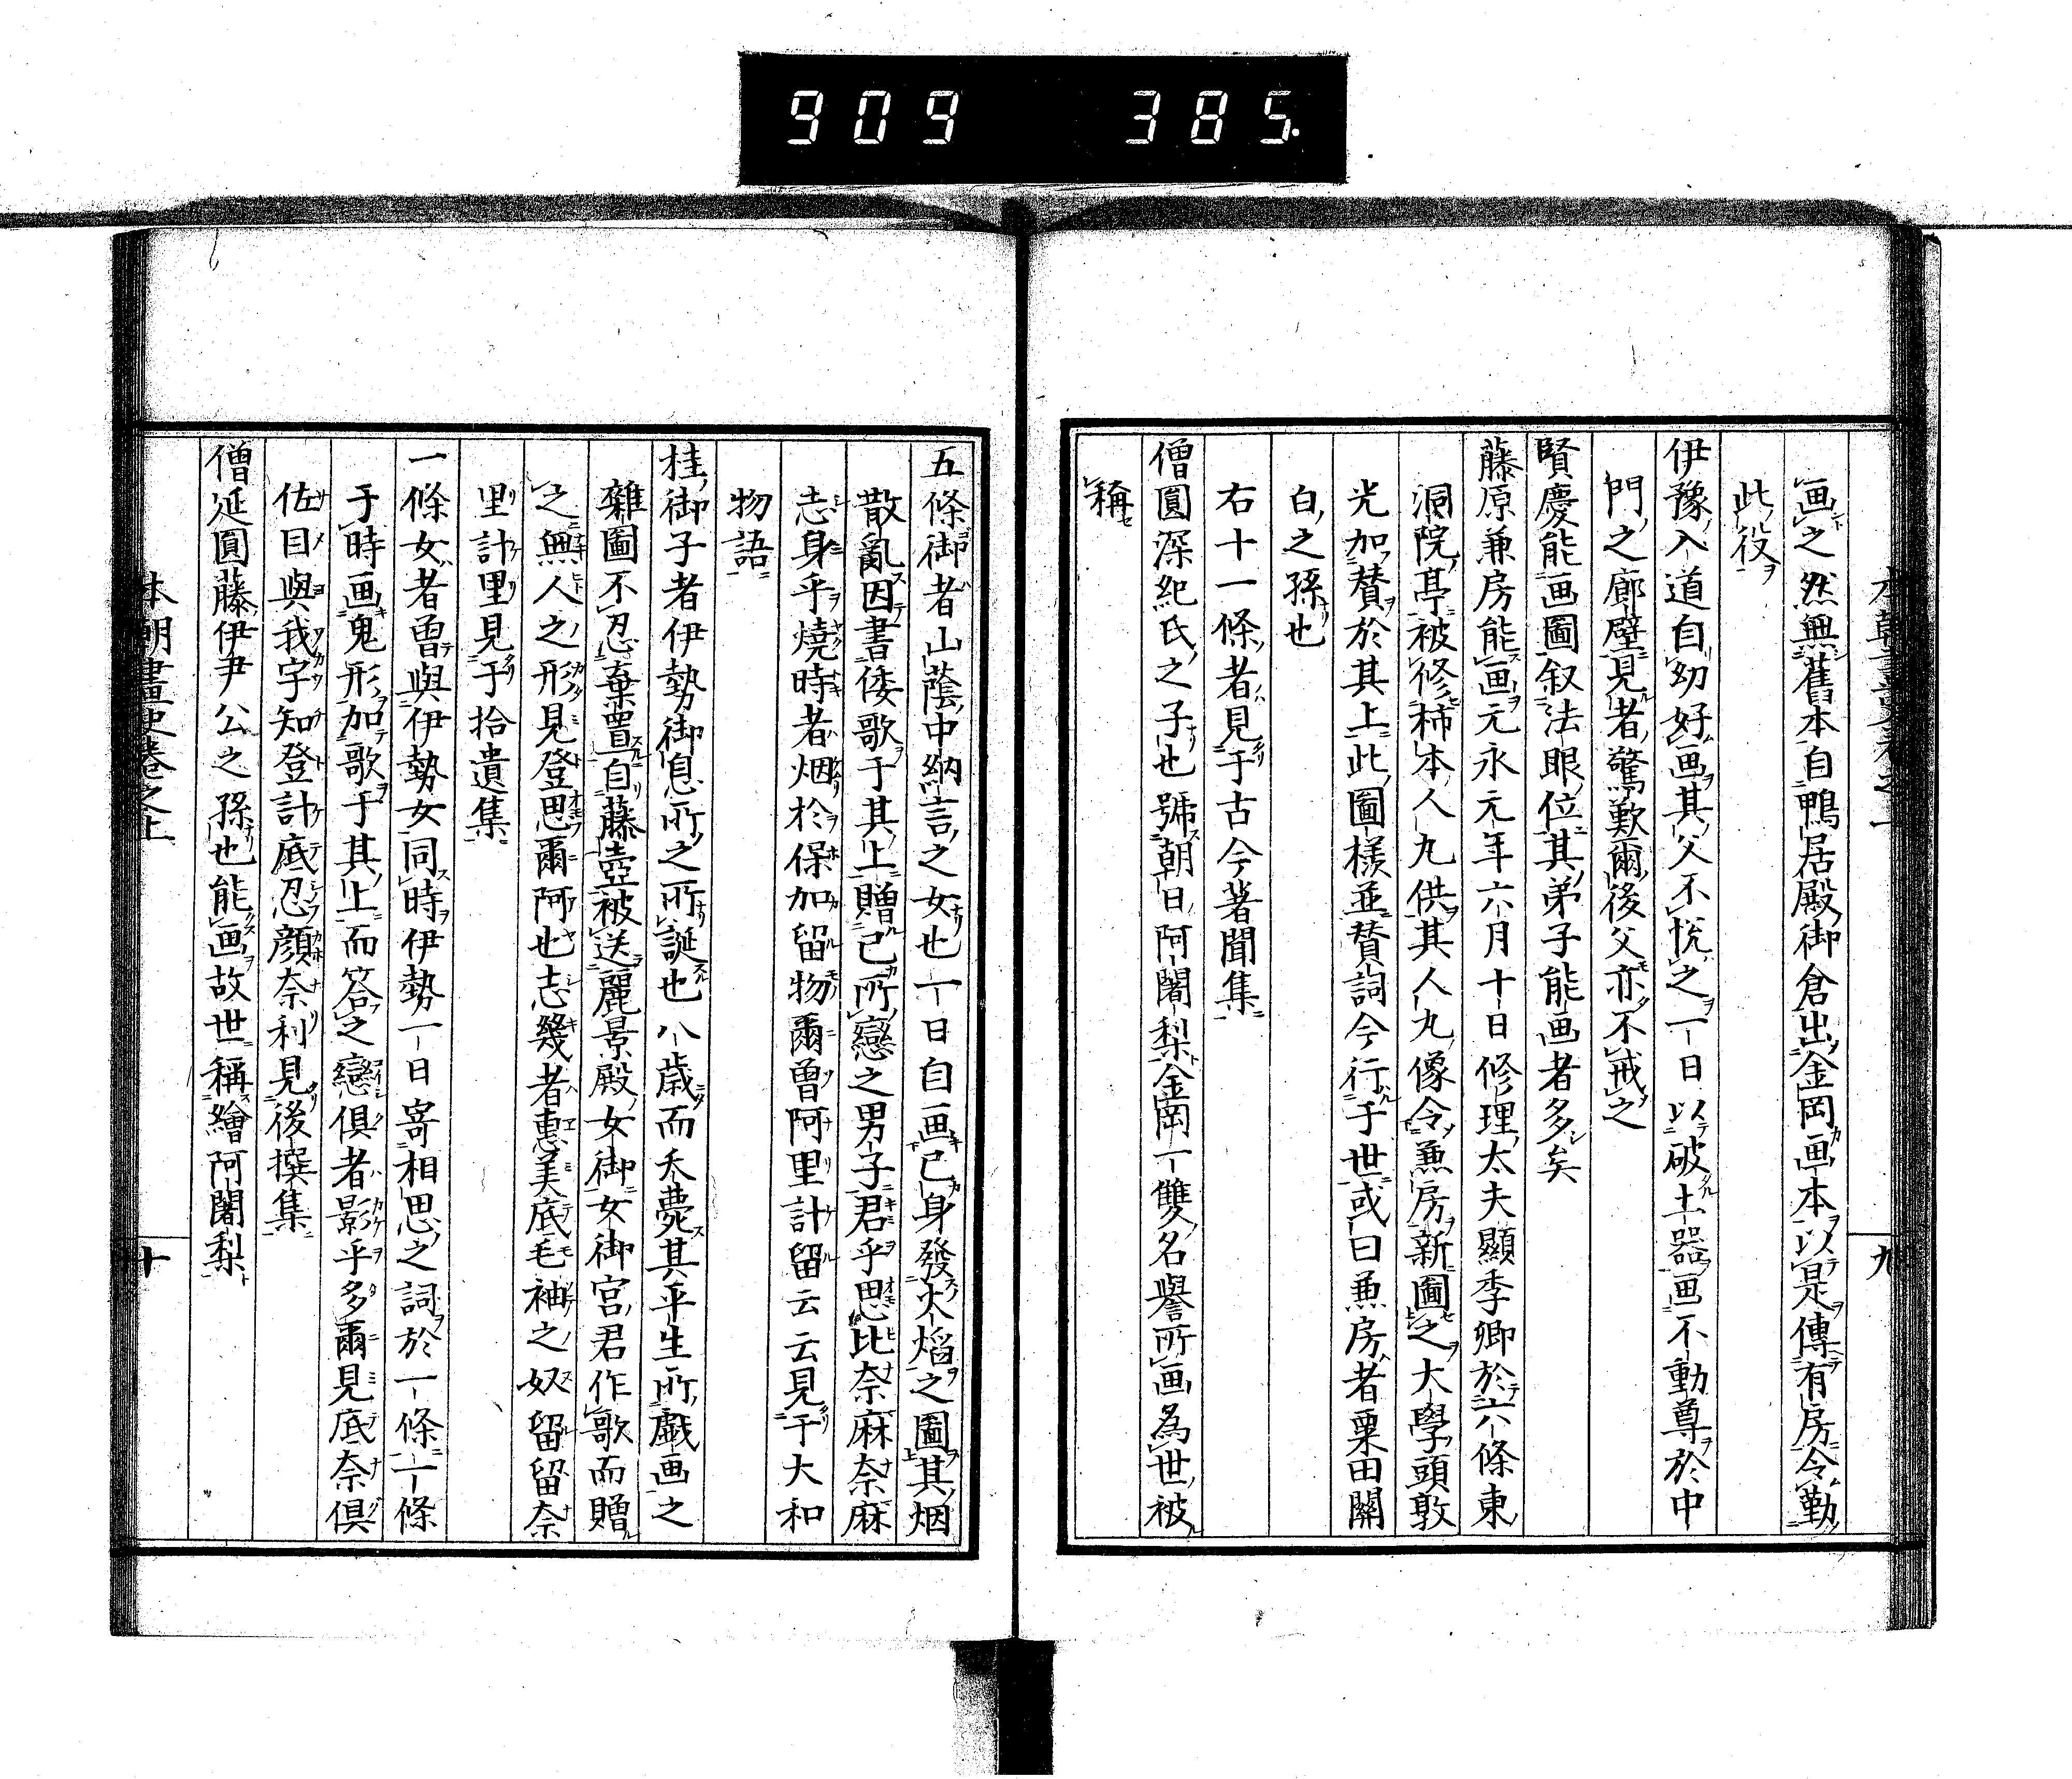 909 385.
画之然無舊本自鴨居殿御倉出金岡画本以是傳有房令勤
此役
伊豫入道自幼好画其父不悦之一日以破土器画不動尊於中
門之廊壁見者驚歎爾後父亦不戒之
賢慶能画圖叙法眼位其弟子能画者多矣
藤原兼房能画元永元年六月十日修理太夫顯季卿於六條東
洞院亭被修柿本人九供其人九像令兼房新圖之大學頭敦
光加賛於其上此圖樣並賛詞今行于世或曰兼房者粟田關
白之孫也
右十一條者見于古今著聞集
僧圓深紀氏之子也號朝日阿闍梨金岡一雙名譽所画為世被
稱
九
五條御者山蔭中納言之女也一日自画己身發火焰之圖其烟
散亂因書倭歌于其上贈己所戀之男子君乎思比奈麻奈麻
志身乎燒時者烟於保加留物爾曽阿里計留云云見于大和
物語
桂御子者伊勢御息所之所誕也八歳而夭薨其平生所戯画之
雜圖不忍棄置自藤壺被送麗景殿女御女御宮君作歌而贈
之無人之形見登思爾阿也志幾者惠美底毛袖之奴留留奈
里計里見于拾遺集
一條女者曽與伊勢女同時伊勢一日寄相思之詞於一條一條
于時画鬼形加歌于其上而答之戀俱者影乎多爾見底奈俱
佐目與我宇知登計底忍顔奈利見後撰集
僧延圓藤伊尹公之孫也能画故世稱繪阿闍梨
本朝畫史卷之上
十